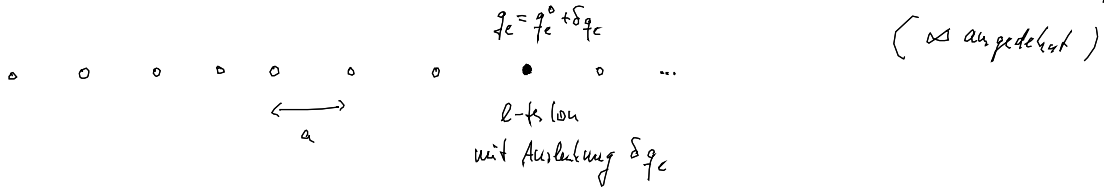 q_l = q_l^0 + δq_l
( ∞ ausgedehnt )
...
a
l-tes Ion
mit Auslenkung δq_l